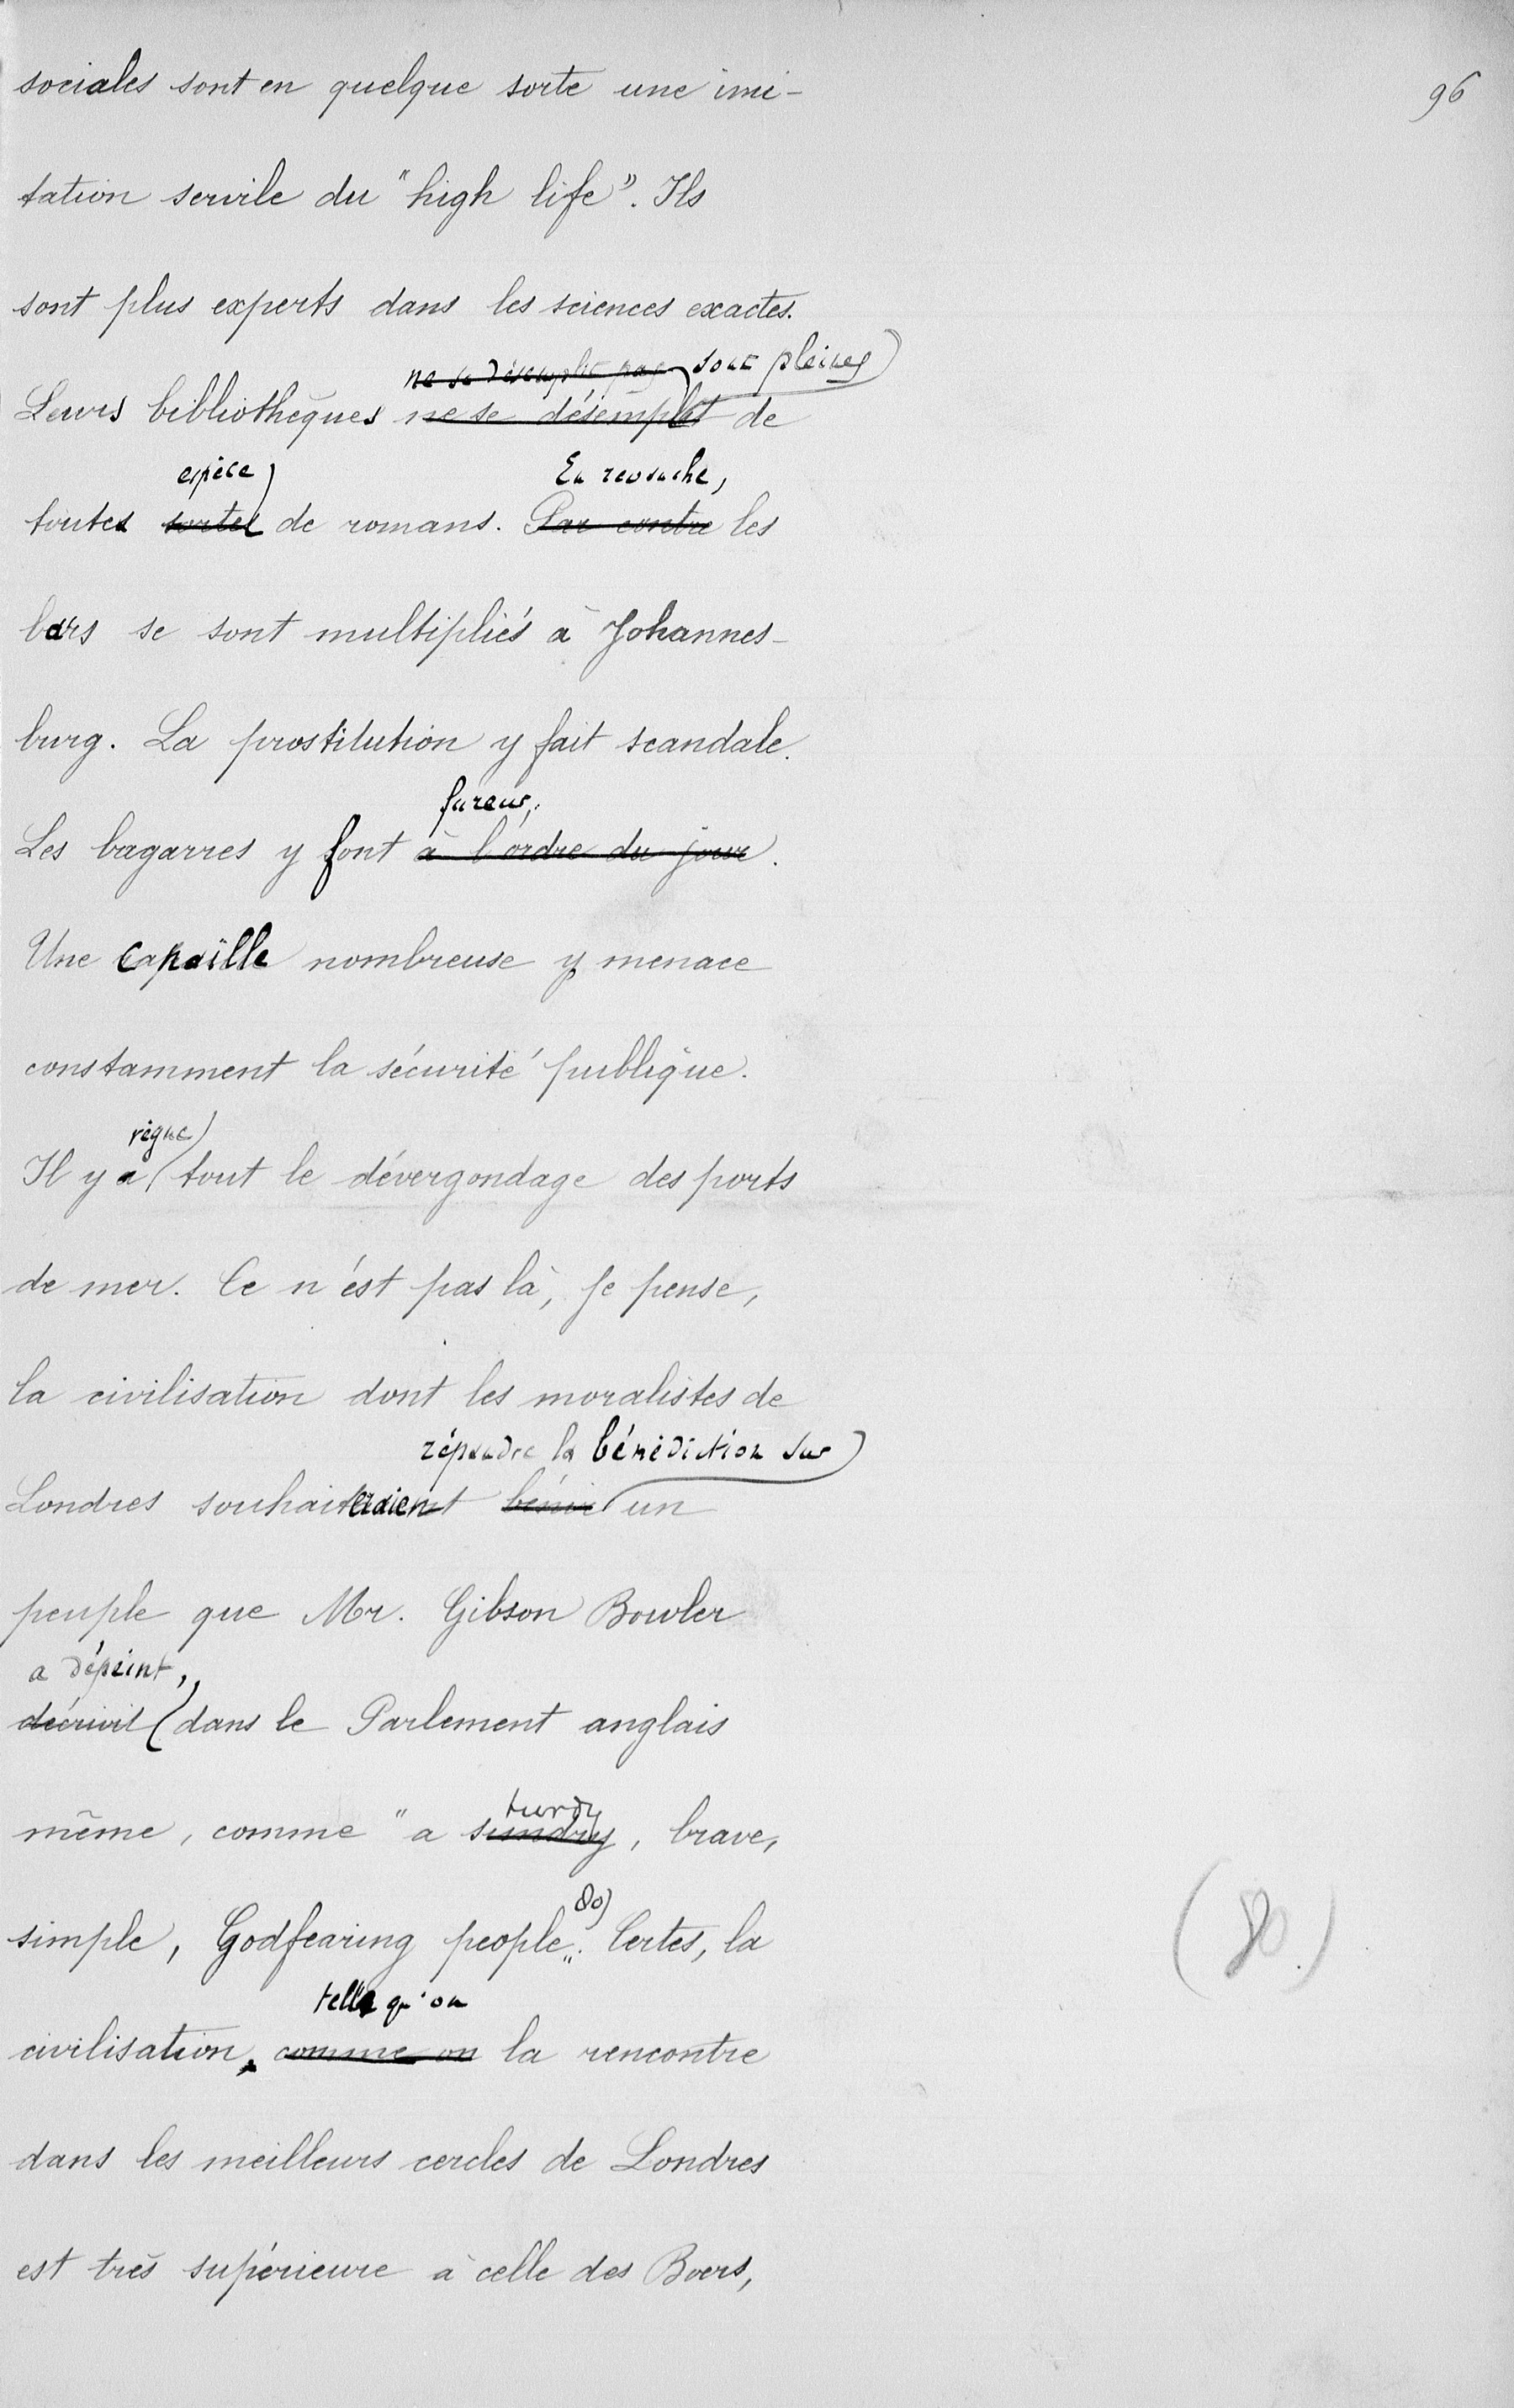 96
sociales sont en quelque sorte une imi-
tation servile du "high life". Ils
sont plus experts dans les sciences exactes.
ne se désemplit pas sont pleines
Leurs bibliothèques ne se désemplit de
espèce En revanche,
toutes sortes de romans. Par contre les
bars se sont multipliés à Johannes-
burg. La prostitution y fait scandale.
fureur,
Les bagarres y font à l'ordre du jour.
Une capaille nombreuse y menace
constamment la sécurité publique.
règne
Il y a tout le dévergondage des ports
de mer. Ce n'est pas là, je pense,
la civilisation dont les moralistes de
répandre la bénédiction sur
Londres souhaiteraient bénir un
peuple que Mr. Gibson Bowler
a dépeint,
décrivit dans le Parlement anglais
turdy
même, comme "a sundry, brave,
80)
simple, Godfearing people„. Certes, la
(80.)
telle qu'on
civilisation, comme on la rencontre
dans les meilleurs cercles de Londres
est très supérieure à celle des Boers,